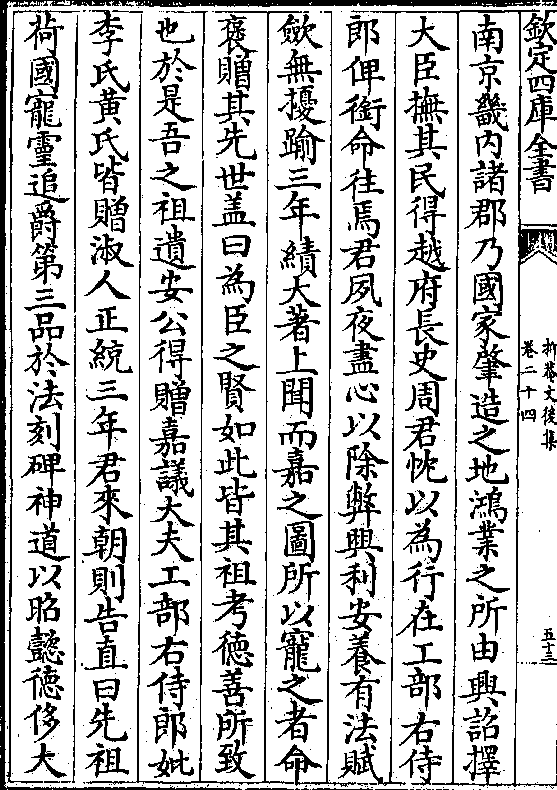 欽定四庫全書
抑菴文後集
卷二十四
五十三
南京畿内諸郡乃國家肇造之地鴻業之所由興詔擇
大臣撫其民得越府長史周君忱以為行在工部右侍
郎俾銜命往焉君夙夜盡心以除弊興利安養有法賦
歛無擾踰三年績大著上聞而嘉之圖所以寵之者命
褒贈其先世盖曰為臣之賢如此皆其祖考德善所致
也於是吾之祖遺安公得贈嘉議大夫工部右侍郎妣
李氏黃氏皆贈淑人正統三年君來朝則告直曰先祖
荷國寵靈追爵第三品於法刻碑神道以昭懿德侈大